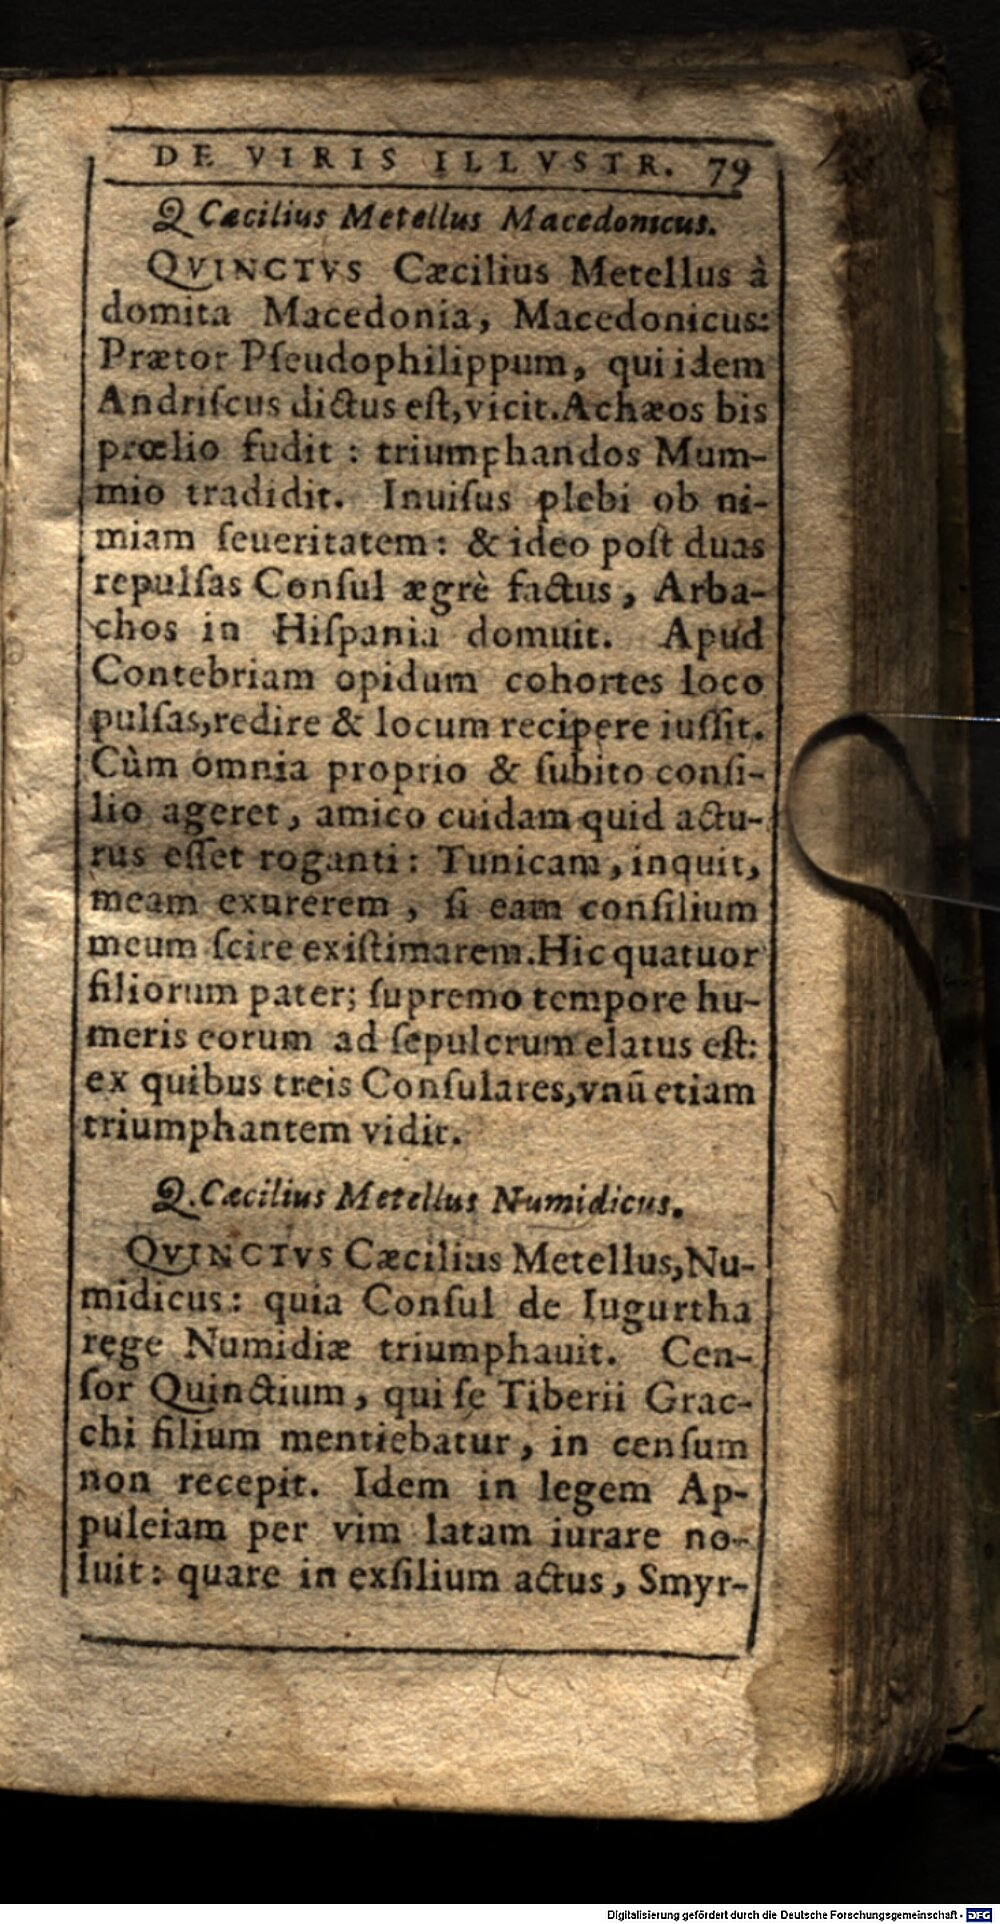 DE VIRIS ILLVSTR. 79
Q Cæcilius Metellus Macedonicus.
QVINCTVS Cæcilius Metellus à
domita Macedonia, Macedonicus:
Prætor Pſeudophilippum, qui idem
Andriſcus dictus eſt, vicit. Achæos bis
prœlio fudit : triumphandos Mum-
mio tradidit. Inuiſus plebi ob ni-
miam ſeueritatem: & ideo poſt duas
repulſas Conſul ægrè factus, Arba-
chos in Hiſpania domuit. Apud
Contebriam opidum cohortes loco
pulſas, redire & locum recipere iuſſit.
Cùm omnia proprio & ſubito conſi-
lio ageret, amico cuidam quid actu-
rus eſſet roganti: Tunicam, inquit,
meam exurerem, ſi eam conſilium
meum ſcire exiſtimarem. Hic quatuor
filiorum pater; ſupremo tempore hu-
meris eorum ad ſepulcrum elatus eſt:
ex quibus treis Conſulares, vnū etiam
triumphantem vidit.
Q. Cæcilius Metellus Numidicus.
QVINCTVS Cæcilius Metellus, Nu-
midicus: quia Conſul de Iugurtha
rege Numidiæ triumphauit. Cen-
ſor Quinctium, qui ſe Tiberii Grac-
chi filium mentiebatur, in cenſum
non recepit. Idem in legem Ap-
puleiam per vim latam iurare no-
luit: quare in exſilium actus, Smyr-
Digitalisierung gefördert durch die Deutsche Forschungsgemeinschaft - DFG